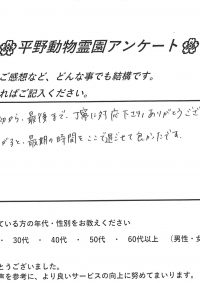 平野動物霊園アンケート
ご感想など、どんな事でも結構です。
ればご記入ください。
から、最後まで、丁寧に対応下さり、ありがとうござ
ると、最期の時間をここで過ごせて良かったです。
ている方の年代・性別をお教えください
・ 30代 ・ 40代 ・ 50代 ・ 60代以上 （男性・女
とうございました。
声を参考に、より良いサービスの向上に努めてまいります。